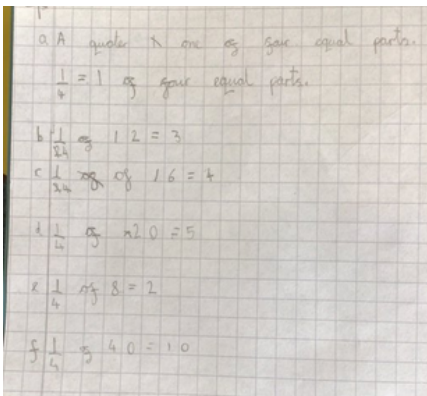 a A quoter is one of foir equal parts.
1/4 = 1 of four equal parts.
b 1/4 of 12 = 3
c 1/4 of 16 = 4
d 1/4 of 20 = 5
e 1/4 of 8 = 2
f 1/4 of 40 = 10